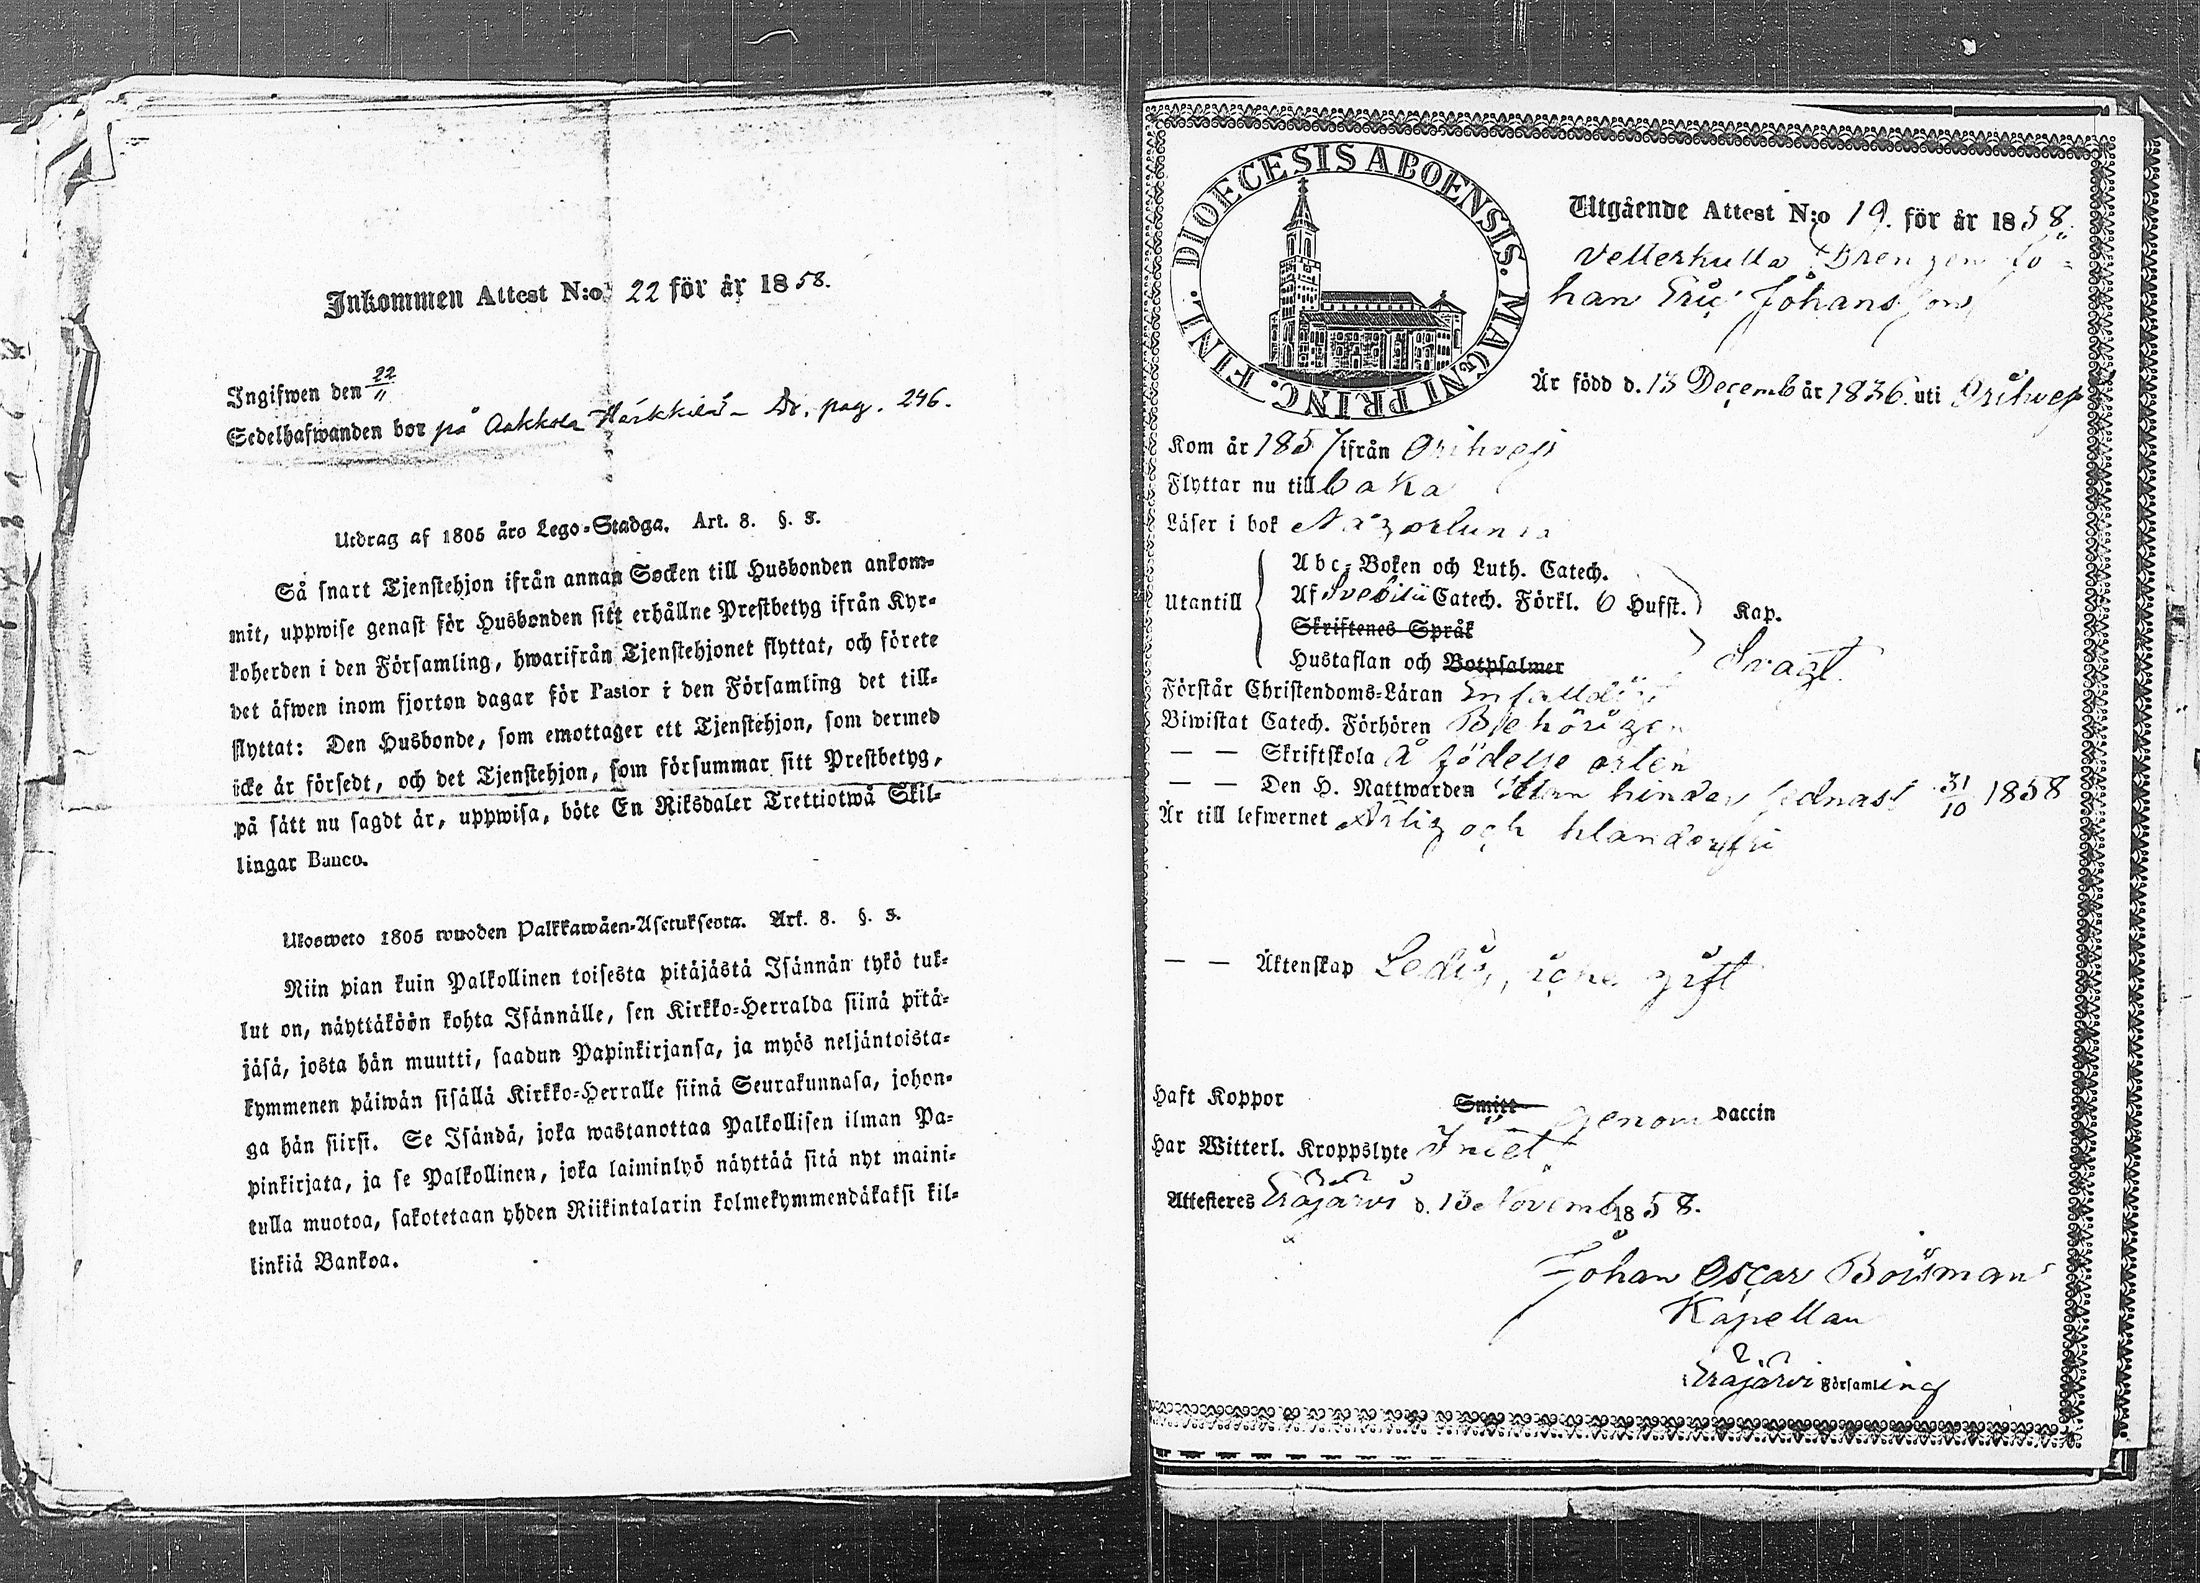 Inkommen Attest N:o 22 för år 1858.
Ingifwen den 22/11
Sedelhafwanden bor på Aakkola Härkkilä Dr. pag. 246.
Utdrag af 1805 års Lego-Stadga. Art. 8. §. 3.
Så snart Tjenstehjon ifrån annan Socken till Husbonden ankom-
mit, uppwise genast för Husbonden sitt erhållne Prestbetyg ifrån Kyr-
koherden i den Församling, hwarifrån Tjenstehjonet flyttat, och förete
det äfwen inom fjorton dagar för Pastor i den Församling det till-
flyttat: Den Husbonde, som emottager ett Tjenstehjon, som dermed
icke är försedt, och det Tjenstehjon, som försummar sitt Prestbetyg,
på sätt nu sagdt är, uppwisa, böte En Riksdaler Trettiotwå Skil-
lingar Banco.
Ulosweto 1805 wuoden Palkkawäen-Asetuksesta. Art. 8. §. 3.
Niin pian kuin Palkollinen toisesta pitäjästä Isännän tykö tul-
lut on, näyttäköön kohta Isännälle, sen Kirkko-Herralda siinä pitä-
jäsä, josta hän muutti, saadun Papinkirjansa, ja myös neljäntoista-
kymmenen päiwän sisällä Kirkko-Herralle siinä Seurakunnasa, johon-
ga hän siirsi. Se Isändä, joka wastanottaa Palkollisen ilman Pa-
pinkirjata, ja se Palkollinen, joka laiminlyö näyttää sitä nyt maini-
tulla muotoa, sakotetaan yhden Riikintalarin kolmekymmendäkaksi kil-
linkiä Bankoa.
DIOECESIS ABOENSIS. MAGNI PRINC. FINL.
Utgående Attest N:o 19. för år 1858.
Vellerkulla Drengen Jo-
han Eric Johansson
Är född d. 13 Decemb år 1836 uti Orihvesi
Kom år 1857 ifrån Orihvesi
Flyttar nu tillbaka
Läser i bok
Utantill
Abc-Boken och Luth. Catech.
Af Svebilii Catech. Förkl. 6 Hufst. Kap.
Skriftenes Språk
Hustaflan och Botpsalmer Svagt.
Förstår Christendoms-Läran Enfalldigt
Biwistat Catech. Förhören Behörigen
— — Skriftskola å födelse orten
— — Den H. Nattwarden Utan hinder sednast 31/10 1858
Är till lefwernet Ärlig och klanderfri
— — Äktenskap Ledig, icke gift
Haft Koppor Smitt genom vaccin
Har Witterl. Kroppslyte Intet
Attesteres Eräjärvi d. 13 Novemb 1858.
Johan Oscar Boisman
Kapellan
Eräjärvi Församling